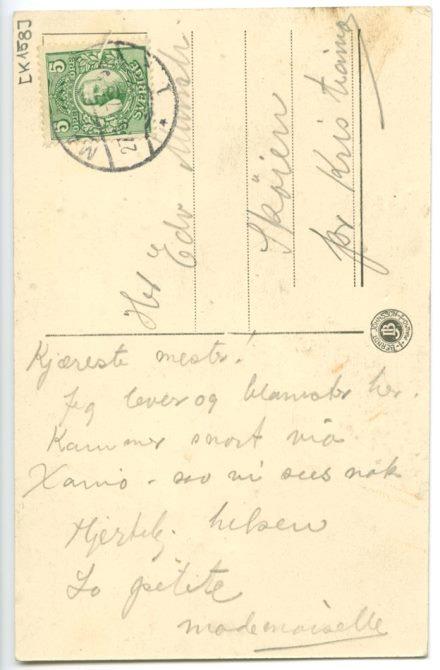 [K158]
5 5
SVERIGE
Hr Edv Munch
Skøien
pr Kristiania
Kjæreste mester!
Jeg lever og blomster her.
Kommer snart via
Xania - saa vi sees nok
Hjertelg. hilsen
La petite
mademoiselle